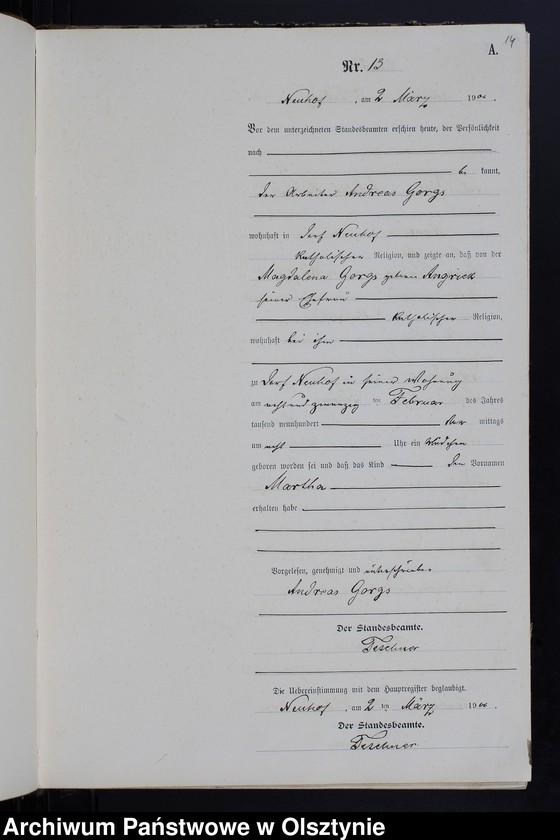 14
A.
Nr. 13
Neuhof, am 2 März 1900.
Vor dem unterzeichneten Standesbeamten erschien heute, der Persönlichkeit
nach
be kannt,
der Arbeiter Andreas Gorgs
wohnhaft in Dorf Neuhof
katholischer Religion, und zeigte an, daß von der
Magdalena Gorgs geboren Angrick
seiner Ehefrau
katholischer Religion,
wohnhaft bei ihm
zu Dorf Neuhof in seiner Wohnung
am acht und zwanzig ten Februar des Jahres
tausend neunhundert Vor mittags
um acht Uhr ein Mädchen
geboren worden sei und daß das Kind den Vornamen
Martha
erhalten habe
Vorgelesen, genehmigt und unterschrieben
Andreas Gorgs
Der Standesbeamte.
Teschner
Die Uebereinstimmung mit dem Hauptregister beglaubigt.
Neuhof, am 2 ten März 1900.
Der Standesbeamte.
Teschner
Archiwum Państwowe w Olsztynie